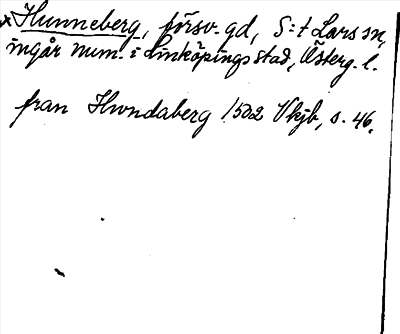 x Hunneberg, försv. gd, S:t Lars sn,
ingår num. i Linköpings stad, Österg. l.
fran Hundaberg 1502 Vkjb, s. 46.